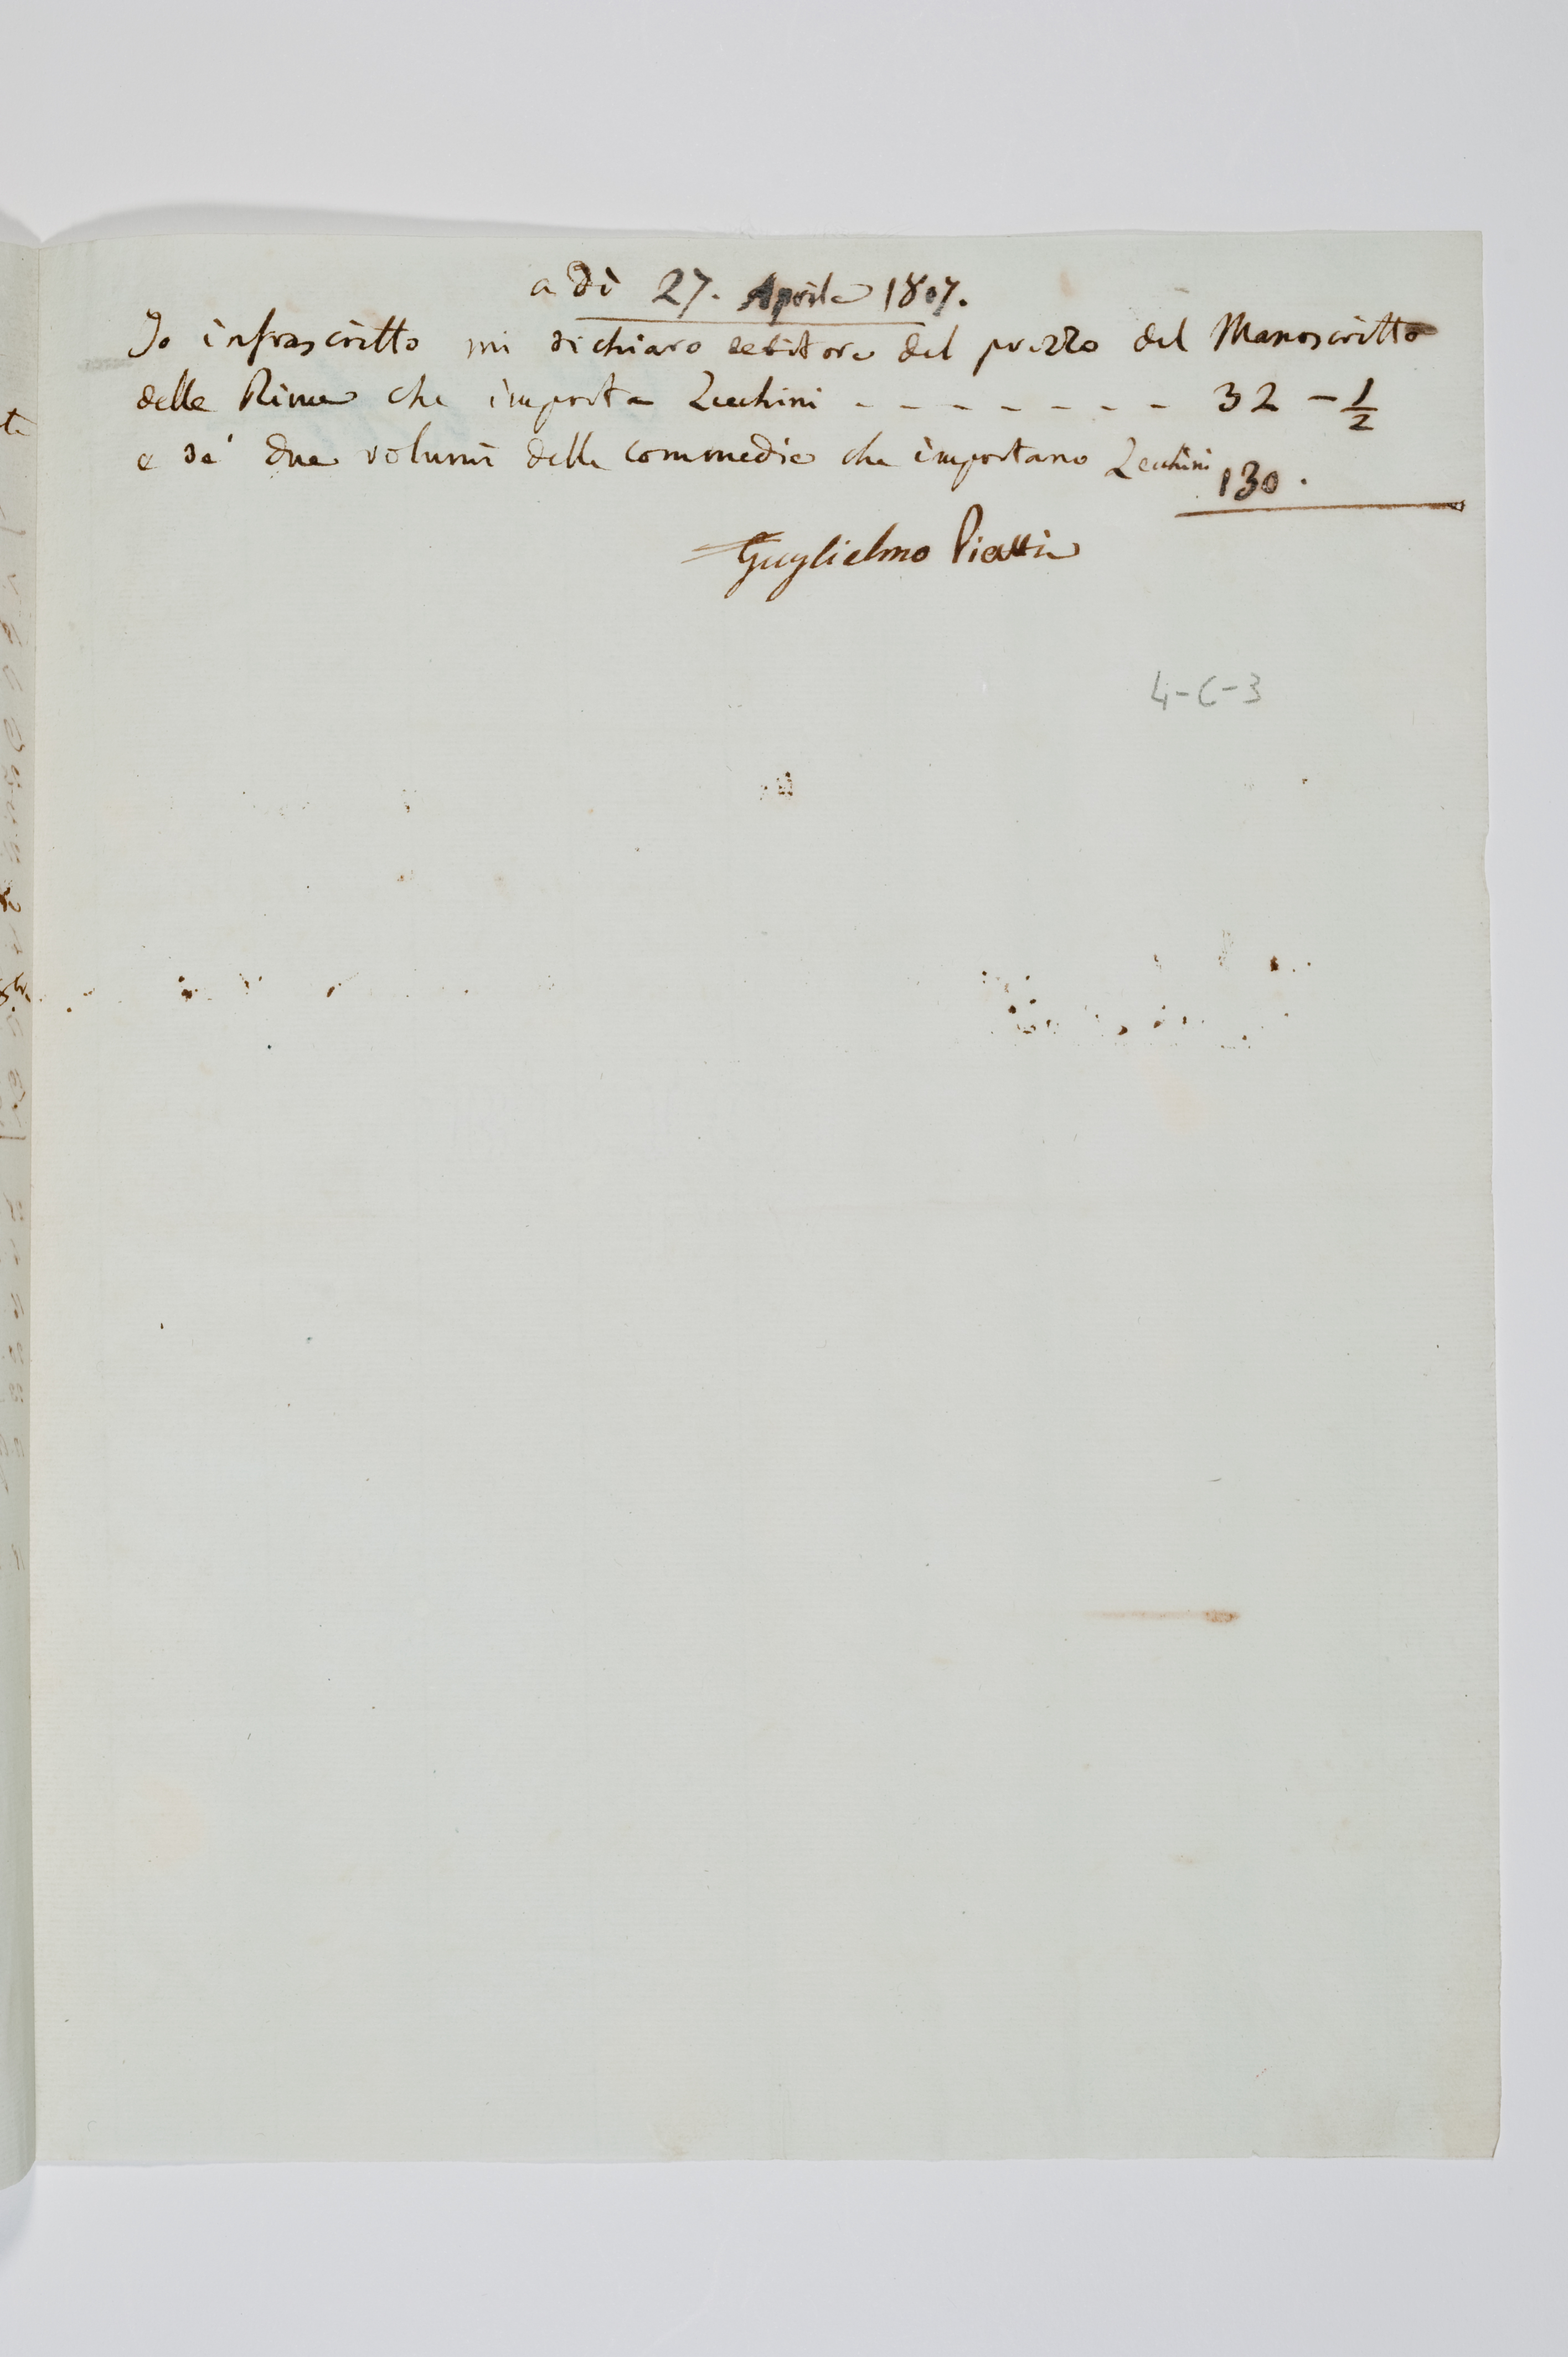 a dì 27. Aprile 1807.
Io infrascritto mi dichiaro debitore del prezzo del Manoscritto
delle Rime che importa Zecchini - - - - - - - - 32 - 1/2
e de' due volumi delle commedie che importano Zecchini 130.
Guglielmo Piatti
4-C-3